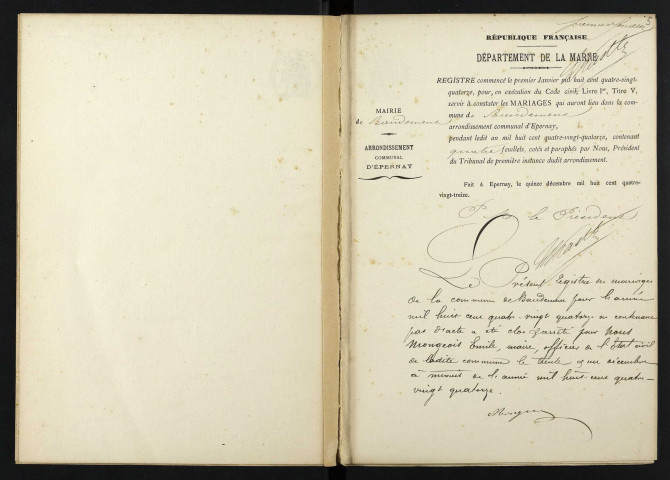 premier feuillet
RÉPUBLIQUE FRANÇAISE
DÉPARTEMENT DE LA MARNE
REGISTRE commencé le premier Janvier mil huit cent quatre-vingt-
quatorze, pour, en exécution du Code civil, Livre Ier, Titre V,
servir à constater les MARIAGES qui auront lieu dans la com-
mune de Baudement
arrondissement communal d'Epernay,
pendant ledit an mil huit cent quatre-vingt-quatorze, contenant
quatre feuillets, cotés et paraphés par Nous, Président
du Tribunal de première instance dudit arrondissement.
MAIRIE
de Baudement
ARRONDISSEMENT
COMMUNAL
D'ÉPERNAY
Fait à Epernay, le quinze décembre mil huit cent quatre-
vingt-treize.
P. le Président
Le Présent Registre des mariages
de la commune de Baudement pour l'année
mil huit cent quatre-vingt quatorze ne contenant
pas d'acte a été clos & arrêté par Nous
Mongeois Emile, maire, officier de l'Etat civil
de ladite commune le trente et un décembre
à minuit de l'année mil huit cent quatre-
vingt quatorze.